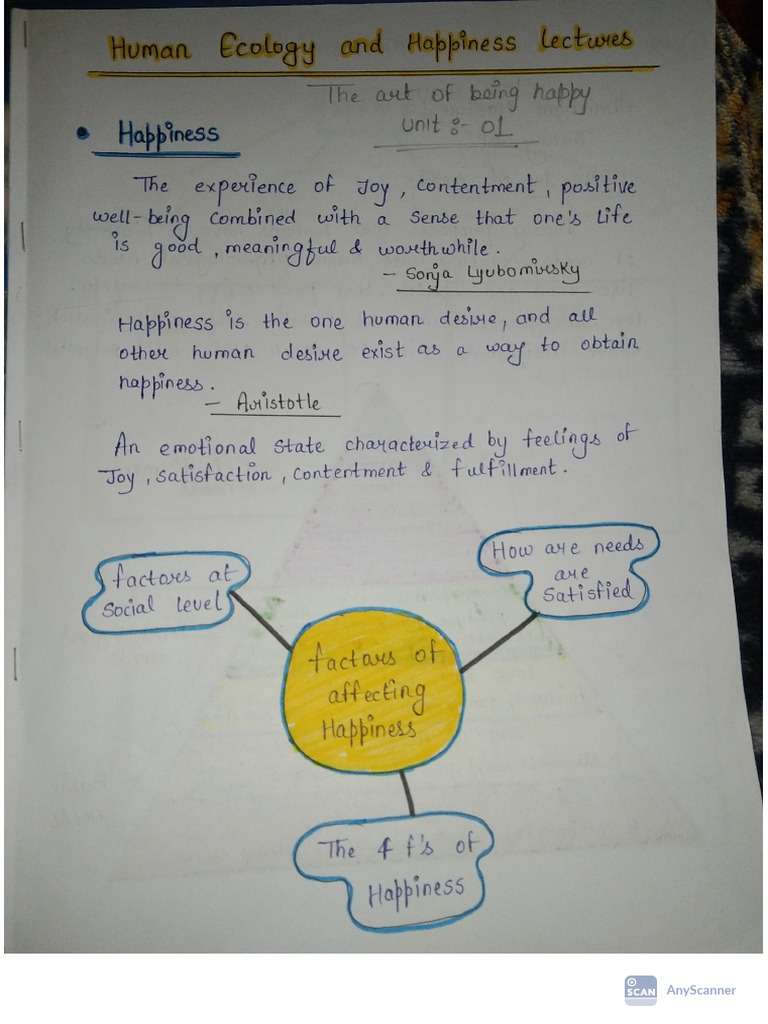 Human Ecology and Happiness Lectures
The art of being happy
Unit :- 01
• Happiness
The experience of Joy, contentment, positive
well-being combined with a sense that one's life
is good, meaningful & worthwhile.
- Sonja Lyubomirsky
Happiness is the one human desire, and all
other human desire exist as a way to obtain
happiness.
- Aristotle
An emotional state characterized by feelings of
Joy, satisfaction, contentment & fulfillment.
factors at
social level
How are needs
are
satisfied
factors of
affecting
Happiness
The 4 f's of
Happiness
SCAN AnyScanner